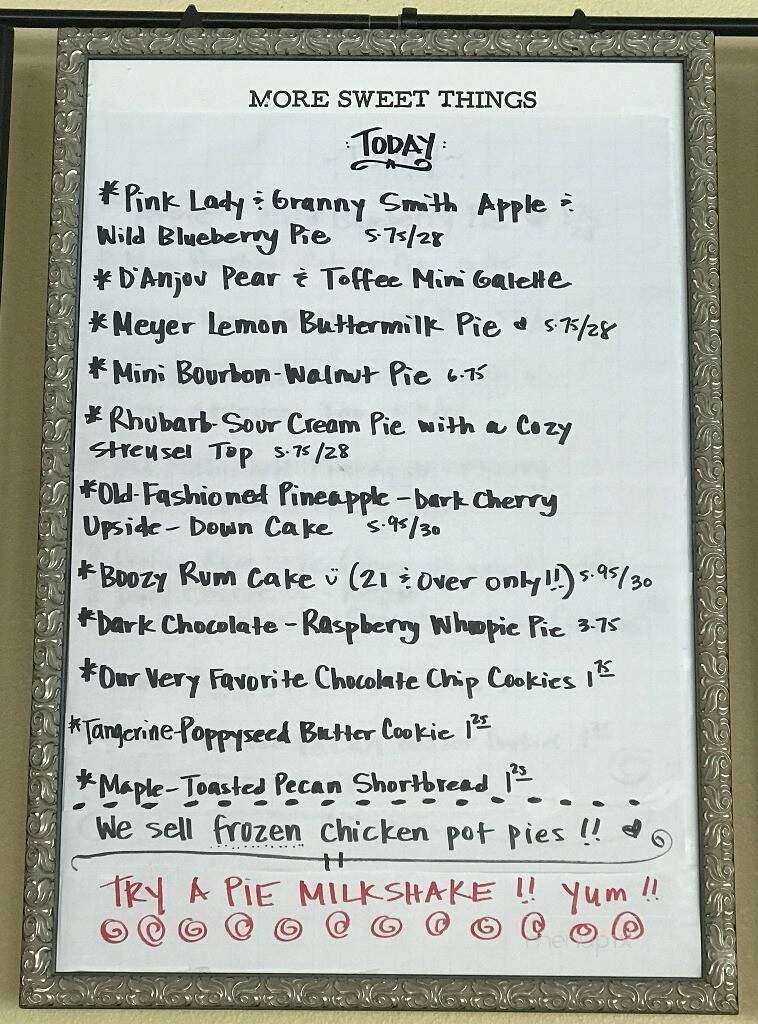 MORE SWEET THINGS
: TODAY :
* Pink Lady & Granny Smith Apple &
Wild Blueberry Pie 5.75/28
* D'Anjou Pear & Toffee Mini Galette
* Meyer Lemon Buttermilk Pie 5.75/28
* Mini Bourbon-Walnut Pie 6.75
* Rhubarb-Sour Cream Pie with a Cozy
Streusel Top 5.75/28
* Old-Fashioned Pineapple-Dark Cherry
Upside-Down Cake 5.95/30
* Boozy Rum Cake ü (21 & over only!!) 5.95/30
* Dark Chocolate-Raspberry Whoopie Pie 3.75
* Our Very Favorite Chocolate Chip Cookies 1 75
* Tangerine-Poppyseed Butter Cookie 1 25
* Maple-Toasted Pecan Shortbread 1 25
We sell frozen chicken pot pies !! ♥
TRY A PIE MILKSHAKE !! Yum !!
menupix